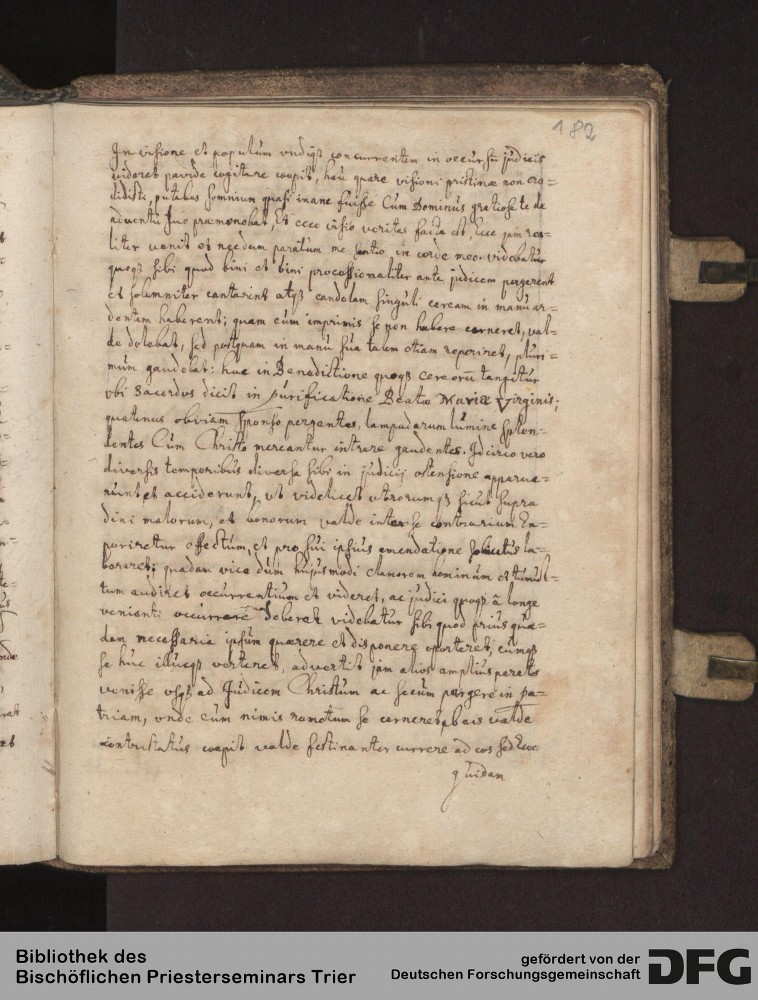 182
In visione et populum undiqꝫ concurrentem in occursū judicis
videret pavide cogitare coepit, heu quare visioni pristinae non cre=
didisti, putabas somnium quasi inane fuisse Cum Dominus gratiose te de
adventu suo praemonebat, Et ecce visio veritas facta est, Ecce jam rea=
liter venit et necdum paratum me sentio in corde meo. videbatur
quoqꝫ sibi quod bini et bini processionaliter ante judicem pergerent
et solemniter cantarent atqꝫ candelam singuli ceream in manu ar=
dentem haberent; quam cum imprimis se non habere cerneret, val=
de dolebat, sed postquam in manu sua talem etiam reperiret, pluri=
mum gaudebat: huc in Benedictione quoqꝫ cereorū tangitur
ubi Sacerdos dicit in purificatione Beatae Mariae Virginis;
quatenus obviam sponso pergentes, lampadarum lumine splen=
dentes Cum Christo mereantur intrare gaudentes. Idcirco vero
diversis temporibus diversa sibi in judicij ostensione apparue=
runt et acciderunt, ut videlicet utrorumqꝫ sicut supra
dixi malorum, et bonorum valde inter se contrarium Ex=
periretur effectum, et pro sui ipsius emendatione la=
boraret; quadam vice dum hujusmodi clamorem hominum et tumul=
tum audiret occurrentium et videret, ac judici quoqꝫ â longe
venienti occurrere deberet videbatur sibi quod prius quae=
dam necessaria ipsum quaerere et disponere oporteret, cumqꝫ
se huc illucqꝫ verteret, advertit jam alios amplius paratos
venisse usqꝫ ad Judicem Christum ac secum pergere in pa=
triam, unde cum nimis remotum se cerneret ab eis valde
contristatus coepit valde festinanter currere ad eos sed Ecce
quidam
Bibliothek des
Bischöflichen Priesterseminars Trier
gefördert von der
Deutschen Forschungsgemeinschaft
DFG